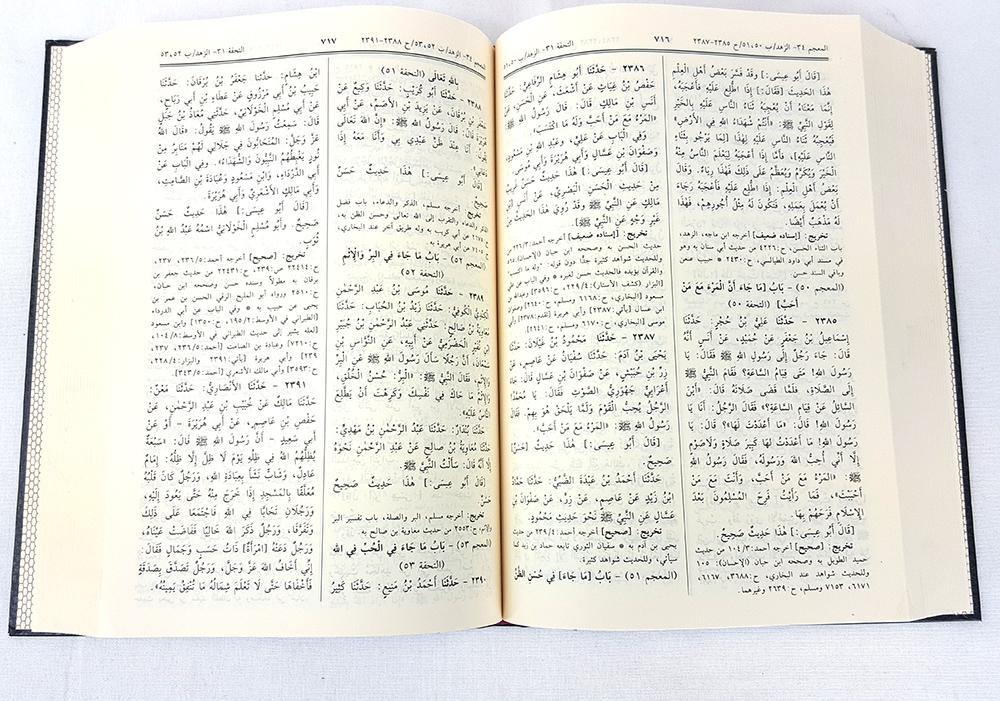 المعجم ٣٤- الزهد/ب ٥١،٥٠/ح ٢٣٨٥-٢٣٨٧
٧١٦
التحفة ٣١- الزهد/ب
[قَالَ أَبُو عِيسَى:] وَقَدْ فَسَّرَ بَعْضُ أَهْلِ الْعِلْمِ
هٰذَا الْحَدِيثَ [فَقَالَ:] إِذَا اطُّلِعَ عَلَيْهِ فَأَعْجَبَهُ،
إِنَّمَا مَعْنَاهُ أَنْ يُعْجِبَهُ ثَنَاءُ النَّاسِ عَلَيْهِ بِالْخَيْرِ
لِقَوْلِ النَّبِيِّ ﷺ: «أَنْتُمْ شُهَدَاءُ اللهِ فِي الْأَرْضِ»
فَيُعْجِبُهُ ثَنَاءُ النَّاسِ عَلَيْهِ لِهٰذَا [لِمَا يَرْجُو بِثَنَاءِ
النَّاسِ عَلَيْهِ]، فَأَمَّا إِذَا أَعْجَبَهُ لِيَعْلَمَ النَّاسُ مِنْهُ
الْخَيْرَ وَيُكْرَمَ وَيُعَظَّمَ عَلَى ذَلِكَ فَهَذَا رِيَاءٌ. وَقَالَ
بَعْضُ أَهْلِ الْعِلْمِ: إِذَا اطُّلِعَ عَلَيْهِ فَأَعْجَبَهُ رَجَاءَ
أَنْ يُعْمَلَ بِعَمَلِهِ، فَتَكُونُ لَهُ مِثْلُ أُجُورِهِمْ، فَهٰذَا
لَهُ مَذْهَبٌ أَيْضًا.
تخريج: [إسناده ضعيف] أخرجه ابن ماجه، الزهد،
باب الثناء الحسن، ح:٤٢٢٦ من حديث أبي سنان به وهو
في مسند أبي داود الطيالسي، ح:٢٤٣٠ * حبيب عنعن
وباقي السند حسن.
(المعجم ٥٠) - بَابُ [مَا جَاءَ أَنَّ الْمَرْءَ مَعَ مَنْ
أَحَبَّ] (التحفة ٥٠)
٢٣٨٥ - حَدَّثَنَا عَلِيُّ بْنُ حُجْرٍ: حَدَّثَنَا
إِسْمَاعِيلُ بْنُ جَعْفَرٍ عَنْ حُمَيْدٍ، عَنْ أَنَسٍ أَنَّهُ
قَالَ: جَاءَ رَجُلٌ إِلَى رَسُولِ اللهِ ﷺ فَقَالَ: يَا
رَسُولَ اللهِ! مَتَى قِيَامُ السَّاعَةِ؟ فَقَامَ النَّبِيُّ ﷺ
إِلَى الصَّلَاةِ، فَلَمَّا قَضَى صَلَاتَهُ قَالَ: «أَيْنَ
السَّائِلُ عَنْ قِيَامِ السَّاعَةِ؟» فَقَالَ الرَّجُلُ: أَنَا يَا
رَسُولَ اللهِ! قَالَ: «مَا أَعْدَدْتَ لَهَا»؟ قَالَ: يَا
رَسُولَ اللهِ! مَا أَعْدَدْتُ لَهَا كَبِيرَ صَلَاةٍ وَلَاصَوْمٍ
إِلَّا أَنِّي أُحِبُّ اللهَ وَرَسُولَهُ، فَقَالَ رَسُولُ اللهِ
ﷺ: «الْمَرْءُ مَعَ مَنْ أَحَبَّ، وَأَنْتَ مَعَ مَنْ
أَحْبَبْتَ». فَمَا رَأَيْتُ فَرِحَ الْمُسْلِمُونَ بَعْدَ
الْإِسْلَامِ فَرَحَهُمْ بِهَا.
[قَالَ أَبُو عِيسَى:] هٰذَا حَدِيثٌ صَحِيحٌ.
تخريج: [صحيح] أخرجه أحمد:١٠٤/٣ من حديث
حميد الطويل به وصححه ابن حبان (الإحسان): ١٠٥
وللحديث شواهد عند البخاري، ح:٣٦٨٨، ٦١٦٧،
٦١٧١، ٧١٥٣ ومسلم، ح:٢٦٣٩ وغيرهما.
٢٣٨٦ - حَدَّثَنَا أَبُو هِشَامٍ الرِّفَاعِيُّ: حَدَّثَنَا
حَفْصُ بْنُ غِيَاثٍ عَنْ أَشْعَثَ، عَنِ الْحَسَنِ، عَنْ
أَنَسِ بْنِ مَالِكٍ قَالَ: قَالَ رَسُولُ اللهِ ﷺ:
«الْمَرْءُ مَعَ مَنْ أَحَبَّ وَلَهُ مَا اكْتَسَبَ».
وَفِي الْبَابِ عَنْ عَلِيٍّ، وَعَبْدِ اللهِ بْنِ مَسْعُودٍ
وَصَفْوَانَ بْنِ عَسَّالٍ وَأَبِي هُرَيْرَةَ وَأَبِي مُوسَى
[قَالَ أَبُو عِيسَى:] هٰذَا حَدِيثٌ حَسَنٌ
مِنْ حَدِيثِ الْحَسَنِ الْبَصْرِيِّ، عَنْ أَنَسِ بْنِ
مَالِكٍ عَنِ النَّبِيِّ ﷺ. وَقَدْ رُوِيَ هٰذَا الْحَدِيثُ
غَيْرِ وَجْهٍ عَنِ النَّبِيِّ [ﷺ].
تخريج: [إسناده ضعيف] أخرجه أحمد:
حديث الحسن به وصححه ابن حبان (الإحسان)
وللحديث شواهد كثيرة جدًّا دون قوله: "وله ما اكتسب"
والقرآن يؤيده فالحديث حسن لغيره * وفي الباب عن علي
٢٣٨٧ - حَدَّثَنَا مَحْمُودُ بْنُ غَيْلَانَ: حَدَّثَنَا
يَحْيَى بْنُ آدَمَ: حَدَّثَنَا سُفْيَانُ عَنْ عَاصِمٍ، عَنْ
زِرِّ بْنِ حُبَيْشٍ، عَنْ صَفْوَانَ بْنِ عَسَّالٍ قَالَ: جَاءَ
أَعْرَابِيٌّ جَهْوَرِيُّ الصَّوْتِ فَقَالَ: يَا مُحَمَّدُ
الرَّجُلُ يُحِبُّ الْقَوْمَ وَلَمَّا يَلْحَقْ هُوَ بِهِمْ. فَقَالَ
رَسُولُ اللهِ ﷺ: «الْمَرْءُ مَعَ مَنْ أَحَبَّ».
[قَالَ أَبُو عِيسَى:] هٰذَا حَدِيثٌ [حَسَنٌ]
صَحِيحٌ.
حَدَّثَنَا أَحْمَدُ بْنُ عَبْدَةَ الضَّبِّيُّ: حَدَّثَنَا حَمَّادُ
ابْنُ زَيْدٍ عَنْ عَاصِمٍ، عَنْ زِرٍّ، عَنْ صَفْوَانَ بْنِ
عَسَّالٍ عَنِ النَّبِيِّ ﷺ نَحْوَ حَدِيثِ مَحْمُودٍ.
تخريج: [صحيح] أخرجه أحمد:٢٣٩/٤ من حديث
يحيى بن آدم به * سفيان الثوري تابعه حماد بن زيد كما
سيأتي، وللحديث شواهد كثيرة.
(المعجم ٥١) - بَابُ [مَا جَاءَ] فِي حُسْنِ الظَّنِّ
المعجم ٣٤- الزهد/ب ٥٣،٥٢/ح ٢٣٨٨-٢٣٩١
٧١٧
التحفة ٣١- الزهد/ب ٥٣،٥٢
بِاللهِ تَعَالَى (التحفة ٥١)
٢٣٨٨ - حَدَّثَنَا أَبُو كُرَيْبٍ: حَدَّثَنَا وَكِيعٌ عَنْ
جَعْفَرِ بْنِ بُرْقَانَ، عَنْ يَزِيدَ بْنِ الْأَصَمِّ، عَنْ أَبِي
هُرَيْرَةَ قَالَ: قَالَ رَسُولُ اللهِ ﷺ: «إِنَّ اللهَ تَعَالَى
يَقُولُ: أَنَا عِنْدَ ظَنِّ عَبْدِي بِي وَأَنَا مَعَهُ إِذَا
دَعَانِي».
[قَالَ أَبُو عِيسَى:] هٰذَا حَدِيثٌ حَسَنٌ
صَحِيحٌ.
تخريج: أخرجه مسلم، الذكر والدعاء، باب فضل
الذكر والدعاء، والتقرب إلى الله تعالى وحسن الظن به،
ح: عن أبي كريب به وله طريق آخر عند البخاري،
ح: عن أبي هريرة به.
(المعجم ٥٢) - بَابُ مَا جَاءَ فِي الْبِرِّ وَالْإِثْمِ
(التحفة ٥٢)
٢٣٨٩ - حَدَّثَنَا مُوسَى بْنُ عَبْدِ الرَّحْمٰنِ
الْكِنْدِيُّ الْكُوفِيُّ: حَدَّثَنَا زَيْدُ بْنُ الْحُبَابِ: حَدَّثَنَا
مُعَاوِيَةُ بْنُ صَالِحٍ: حَدَّثَنِي عَبْدُ الرَّحْمٰنِ بْنُ جُبَيْرِ
بْنِ نُفَيْرٍ الْحَضْرَمِيُّ عَنْ أَبِيهِ، عَنِ النَّوَّاسِ بْنِ
سَمْعَانَ، أَنَّ رَجُلًا سَأَلَ رَسُولَ اللهِ ﷺ عَنِ الْبِرِّ
وَالْإِثْمِ، فَقَالَ النَّبِيُّ ﷺ: «الْبِرُّ: حُسْنُ الْخُلُقِ،
وَالْإِثْمُ: مَا حَاكَ فِي نَفْسِكَ وَكَرِهْتَ أَنْ يَطَّلِعَ
النَّاسُ عَلَيْهِ».
حَدَّثَنَا بُنْدَارٌ: حَدَّثَنَا عَبْدُ الرَّحْمٰنِ بْنُ مَهْدِيٍّ:
حَدَّثَنَا مُعَاوِيَةُ بْنُ صَالِحٍ عَنْ عَبْدِ الرَّحْمٰنِ نَحْوَهُ
إِلَّا أَنَّهُ قَالَ: سَأَلْتُ النَّبِيَّ ﷺ.
[قَالَ أَبُو عِيسَى:] هٰذَا حَدِيثٌ صَحِيحٌ
حَسَنٌ.
تخريج: أخرجه مسلم، البر والصلة، باب تفسير البر
والإثم، ح:٢٥٥٣ من حديث معاوية بن صالح به.
(المعجم ٥٣) - بَابُ مَا جَاءَ فِي الْحُبِّ فِي اللهِ
(التحفة ٥٣)
٢٣٩٠ - حَدَّثَنَا أَحْمَدُ بْنُ مَنِيعٍ: حَدَّثَنَا كَثِيرُ
ابْنُ هِشَامٍ: حَدَّثَنَا جَعْفَرُ بْنُ بُرْقَانَ: حَدَّثَنَا
حَبِيبُ بْنُ أَبِي مَرْزُوقٍ عَنْ عَطَاءِ بْنِ أَبِي رَبَاحٍ،
عَنْ أَبِي مُسْلِمٍ الْخَوْلَانِيِّ، حَدَّثَنِي مُعَاذُ بْنُ جَبَلٍ
قَالَ: سَمِعْتُ رَسُولَ اللهِ ﷺ يَقُولُ: «قَالَ اللهُ
عَزَّ وَجَلَّ: الْمُتَحَابُّونَ فِي جَلَالِي لَهُمْ مَنَابِرُ مِنْ
نُورٍ يَغْبِطُهُمُ النَّبِيُّونَ وَالشُّهَدَاءُ». وَفِي الْبَابِ عَنْ
أَبِي الدَّرْدَاءِ، وَابْنِ مَسْعُودٍ وَعُبَادَةَ بْنِ الصَّامِتِ،
وَأَبِي مَالِكٍ الْأَشْعَرِيِّ وَأَبِي هُرَيْرَةَ.
[قَالَ أَبُو عِيسَى:] هٰذَا حَدِيثٌ حَسَنٌ
صَحِيحٌ. وَأَبُو مُسْلِمٍ الْخَوْلَانِيُّ اسْمُهُ عَبْدُ اللهِ بْنُ
ثُوَبَ.
تخريج: [صحيح] أخرجه أحمد:٢٣٦/٥، ٢٣٧،
٢٣٩، ح:٢٢٤١٤، ح:٢٢٤٣١ من حديث جعفر بن
برقان به مطولًا وسنده حسن وصححه ابن حبان،
ح:٢٥١٠ ورواه أبو المليح الرقي الحسن بن عمر بن
يحيى عن حبيب به * وفي الباب عن أبي الدرداء
[الطبراني في الأوسط:١٩٥/٢، ح:١٣٥٠] وابن مسعود
[لعله يشير إلى حديث الطبراني في الأوسط:١٠٤/٨،
ح:٧٢١٠] وعبادة بن الصامت [أحمد:٢٣٦/٥، ٢٣٧،
٢٣٩] وأبي هريرة [يأتي:٢٣٩١ والبزار:٢٢٨/٤،
ح:٣٥٩٣] وأبي مالك الأشعري [أحمد:٣٤٣/٥].
٢٣٩١ - حَدَّثَنَا الْأَنْصَارِيُّ: حَدَّثَنَا مَعْنٌ:
حَدَّثَنَا مَالِكٌ عَنْ خُبَيْبِ بْنِ عَبْدِ الرَّحْمٰنِ، عَنْ
حَفْصِ بْنِ عَاصِمٍ، عَنْ أَبِي هُرَيْرَةَ - أَوْ عَنْ
أَبِي سَعِيدٍ - أَنَّ رَسُولَ اللهِ ﷺ قَالَ: «سَبْعَةٌ
يُظِلُّهُمُ اللهُ فِي ظِلِّهِ يَوْمَ لَا ظِلَّ إِلَّا ظِلُّهُ: إِمَامٌ
عَادِلٌ، وَشَابٌّ نَشَأَ بِعِبَادَةِ اللهِ، وَرَجُلٌ كَانَ قَلْبُهُ
مُعَلَّقًا بِالْمَسْجِدِ إِذَا خَرَجَ مِنْهُ حَتَّى يَعُودَ إِلَيْهِ،
وَرَجُلَانِ تَحَابَّا فِي اللهِ فَاجْتَمَعَا عَلَى ذَلِكَ
وَتَفَرَّقَا، وَرَجُلٌ ذَكَرَ اللهَ خَالِيًا فَفَاضَتْ عَيْنَاهُ،
وَرَجُلٌ دَعَتْهُ [امْرَأَةٌ] ذَاتُ حَسَبٍ وَجَمَالٍ فَقَالَ:
إِنِّي أَخَافُ اللهَ عَزَّ وَجَلَّ، وَرَجُلٌ تَصَدَّقَ بِصَدَقَةٍ
فَأَخْفَاهَا حَتَّى لَا تَعْلَمَ شِمَالُهُ مَا تُنْفِقُ يَمِينُهُ».